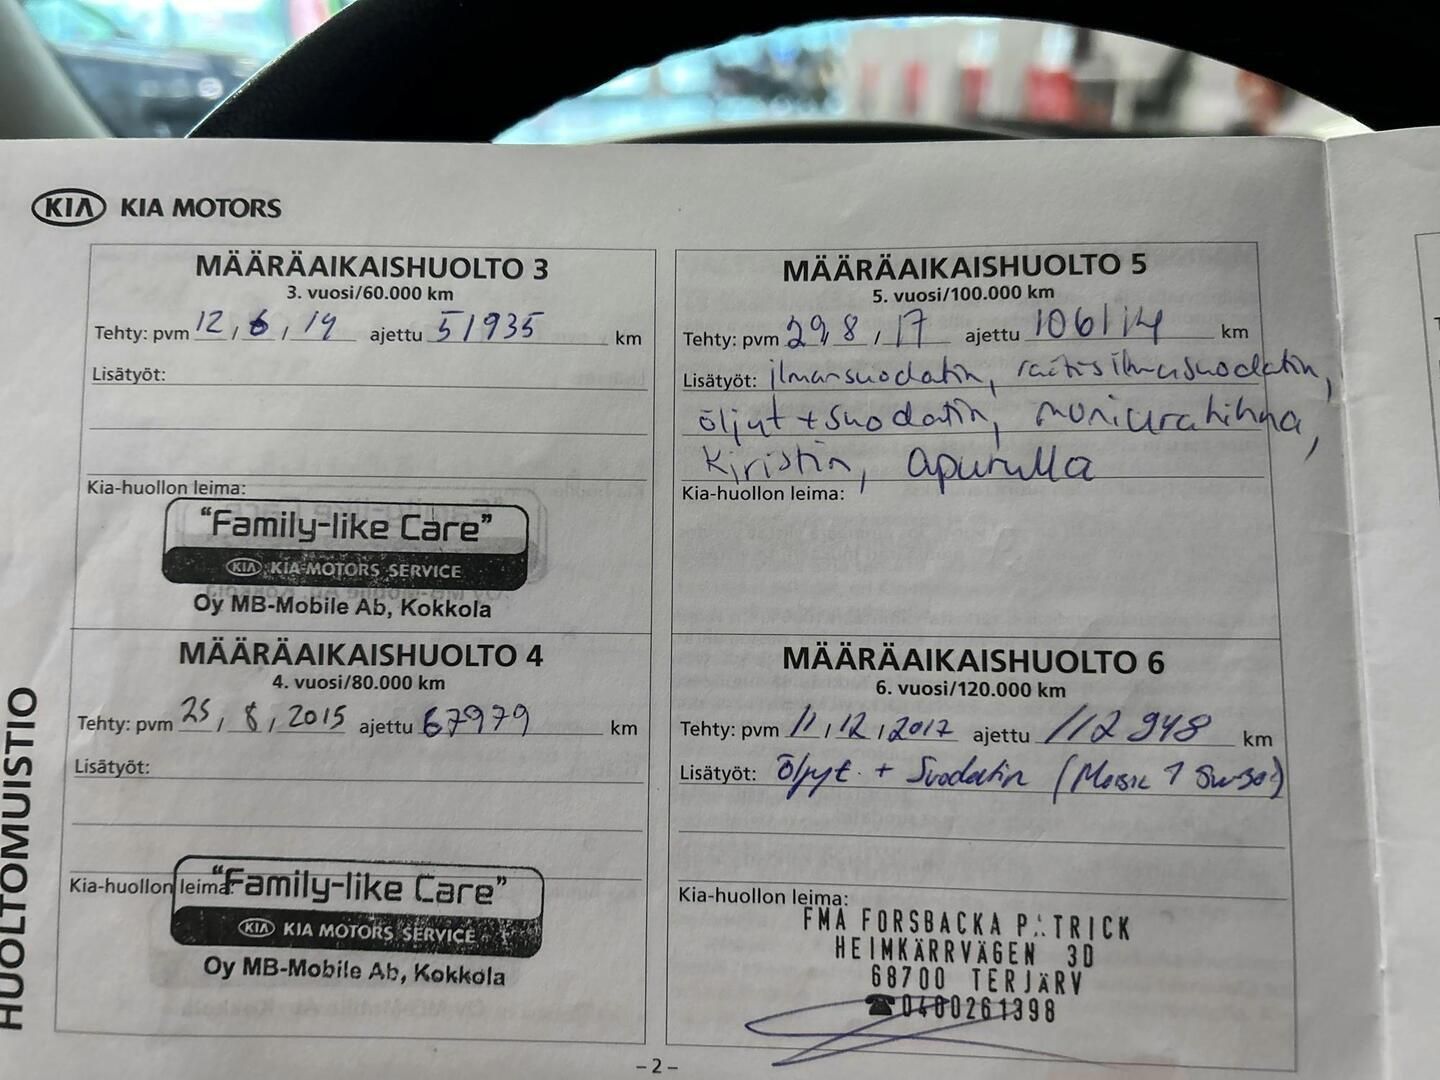 KIA KIA MOTORS
HUOLTOMUISTIO
MÄÄRÄAIKAISHUOLTO 3
3. vuosi/60.000 km
Tehty: pvm 12, 6, 14 ajettu 51935 km
Lisätyöt:
Kia-huollon leima:
"Family-like Care"
KIA KIA MOTORS SERVICE
Oy MB-Mobile Ab, Kokkola
MÄÄRÄAIKAISHUOLTO 4
4. vuosi/80.000 km
Tehty: pvm 25, 8, 2015 ajettu 67979 km
Lisätyöt:
Kia-huollon leima:
"Family-like Care"
KIA KIA MOTORS SERVICE
Oy MB-Mobile Ab, Kokkola
MÄÄRÄAIKAISHUOLTO 5
5. vuosi/100.000 km
Tehty: pvm 29, 8, 17 ajettu 106114 km
Lisätyöt: ilmansuodatin, raitisilmasuodatin,
öljyt + suodatin, moniurahihna,
kiristin, apurulla
Kia-huollon leima:
MÄÄRÄAIKAISHUOLTO 6
6. vuosi/120.000 km
Tehty: pvm 11, 12, 2017 ajettu 112948 km
Lisätyöt: Öljyt + Suodatin
Kia-huollon leima:
FMA FORSBACKA PATRICK
HEIMKÄRRVÄGEN 3D
68700 TERJÄRV
☎0400261398
– 2 –